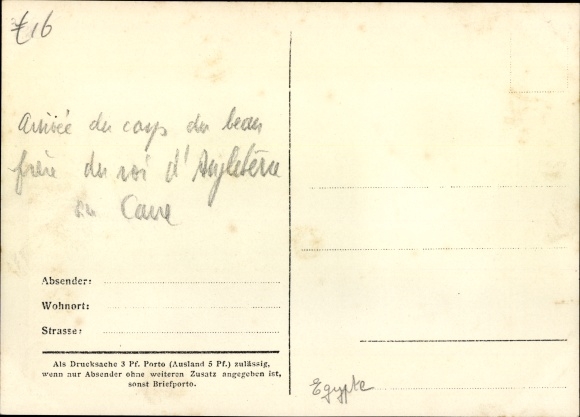 £16
Arrivée du corps du beau
frère du roi d'Angleterre
au Caire
Absender:
Wohnort:
Strasse:
Als Drucksache 3 Pf. Porto (Ausland 5 Pf.) zulässig,
wenn nur Absender ohne weiteren Zusatz angegeben ist,
sonst Briefporto.
Egypte